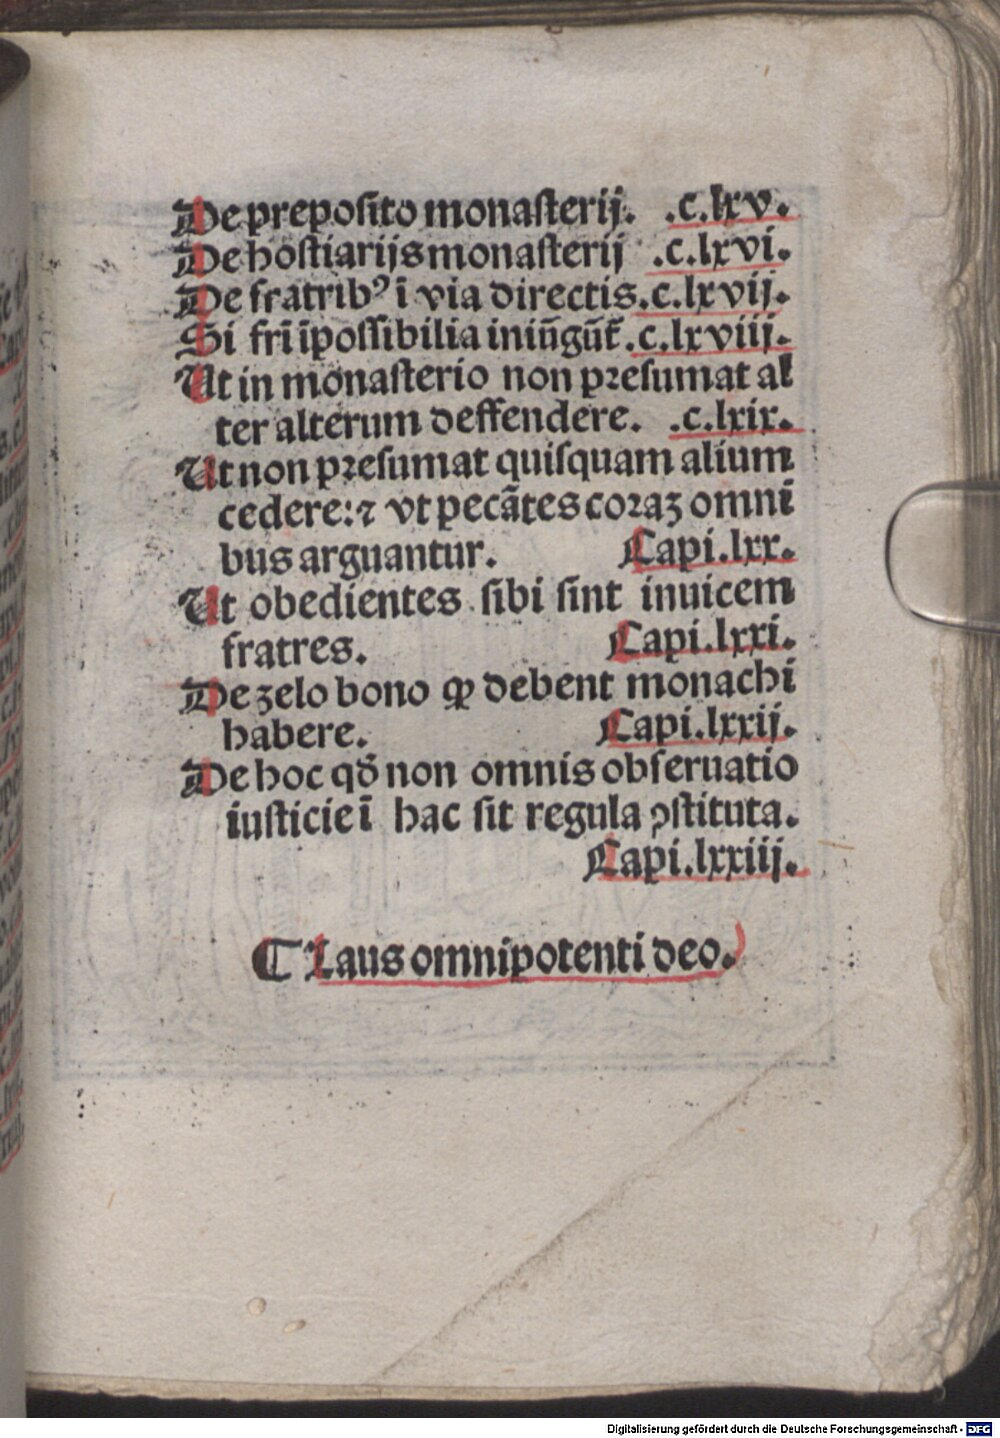 De prepoſito monaſterij. .c.lxv.
De hoſtiarijs monaſterij .c.lxvi.
De fratribꝰ ī via directis.c.lxvij.
Si fr̄i īpoſſibilia iniūgūt̄.c.lxviij.
Ut in monaſterio non pꝛeſumat al
ter alterum deffendere. .c.lxix.
Ut non pꝛeſumat quiſquam alium
cedere:⁊ vt pecātes coꝛaꝫ omnī
bus arguantur. Capi.lxx.
Ut obedientes ſibi ſint inuicem
fratres. Capi.lxxi.
De zelo bono ꝙ debent monachi
habere. Capi.lxxij.
De hoc qď non omnis obſeruatio
iuſticie ī hac ſit regula ꝯſtituta.
Capi.lxxiij.
⁋ Laus omnipotenti deo.
Digitalisierung gefördert durch die Deutsche Forschungsgemeinschaft - DFG